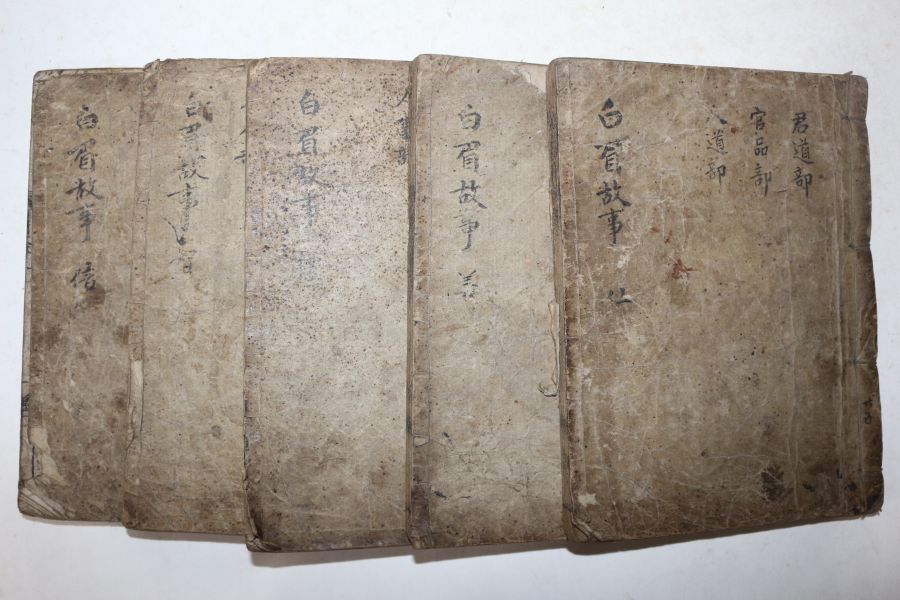 君道部
官品部
人道部
白眉故事 仁
白眉故事 義
白眉故事 禮
白眉故事 智
白眉故事 信